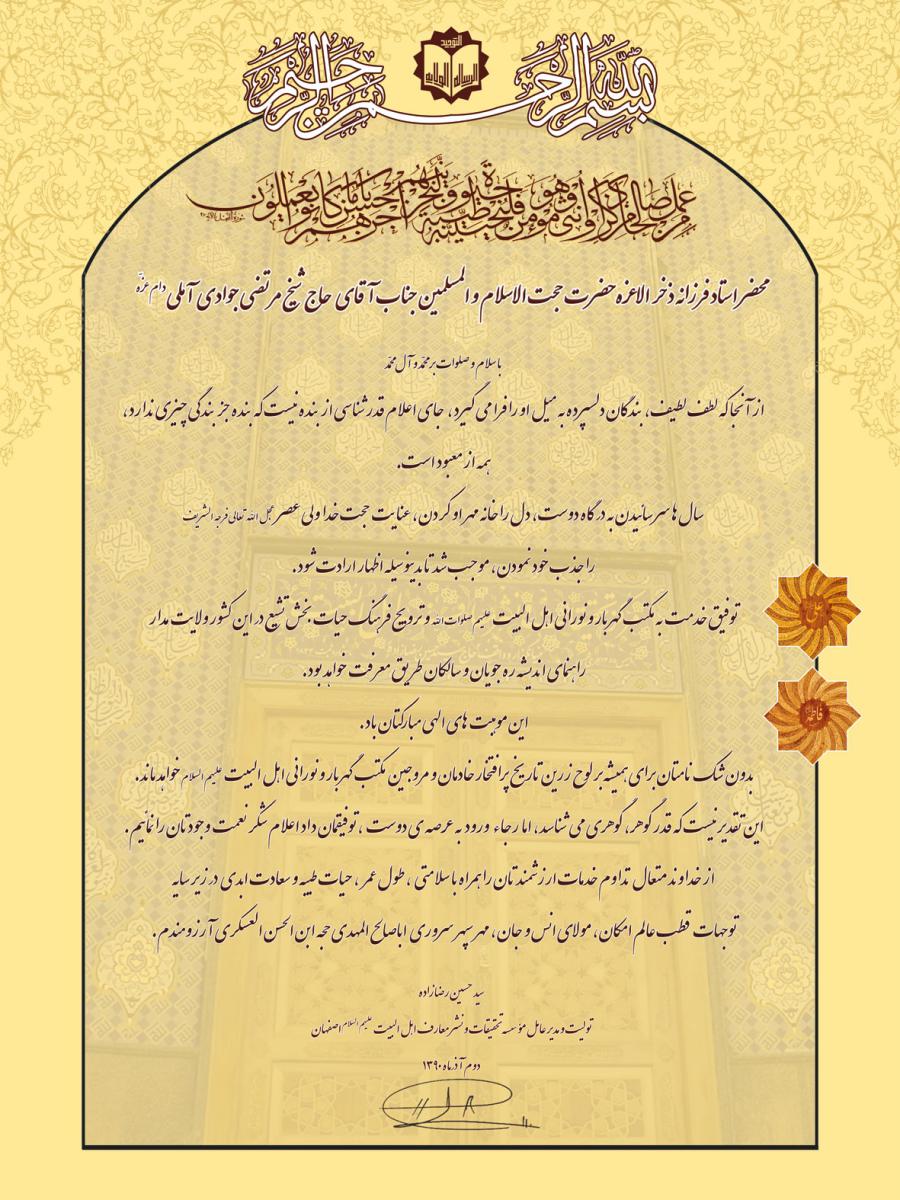 التوحید
الرساله الولایه
بسم الله الرحمن الرحیم
من عمل صالحا من ذکر او انثی و هو مؤمن فلنحیینه حیوة طیبة و لنجزینهم اجرهم باحسن ما کانوا یعملون
محضر استاد فرزانه ذخر الاعزه حضرت حجت الاسلام و المسلمین جناب آقای حاج شیخ مرتضی جوادی آملی دام عزّه
با سلام و صلوات بر محمّد و آل محمّد
از آنجا که لطف لطیف، بندگان دلسپرده به میل او را فرا می گیرد، جای اعلام قدرشناسی از بنده نیست که بنده جز بندگی چیزی ندارد،
همه از معبود است.
سال ها سر ساییدن به درگاه دوست، دل را خانه مهر او کردن، عنایت حجت خدا ولی عصر عجل الله تعالی فرجه الشریف
را جذب خود نمودن، موجب شد تا بدینوسیله اظهار ارادت شود.
توفیق خدمت به مکتب گهربار و نورانی اهل البیت علیهم صلوات الله و ترویج فرهنگ حیات بخش تشیع در این کشور ولایت مدار
راهنمای اندیشه ره جویان و سالکان طریق معرفت خواهد بود.
این موهبت های الهی مبارکتان باد.
بدون شک نامتان برای همیشه بر لوح زرین تاریخ پر افتخار خادمان و مروجین مکتب گهربار و نورانی اهل البیت علیهم السلام خواهد ماند.
این تقدیر نیست که قدر گوهر، گوهری می شناسد، اما رجاء ورود به عرصه ی دوست، توفیقمان داد اعلام شکر نعمت وجودتان را نمائیم.
از خداوند متعال تداوم خدمات ارزشمندتان را همراه با سلامتی، طول عمر، حیات طیبه و سعادت ابدی در زیر سایه
توجهات قطب عالم امکان، مولای انس و جان، مهر سپهر سروری اباصالح المهدی حجه ابن الحسن العسکری آرزومندم.
علی
فاطمة
سید حسین رضازاده
تولیت و مدیر عامل مؤسسه تحقیقات و نشر معارف اهل البیت علیهم السلام اصفهان
دوم آذر ماه ۱۳۹۰